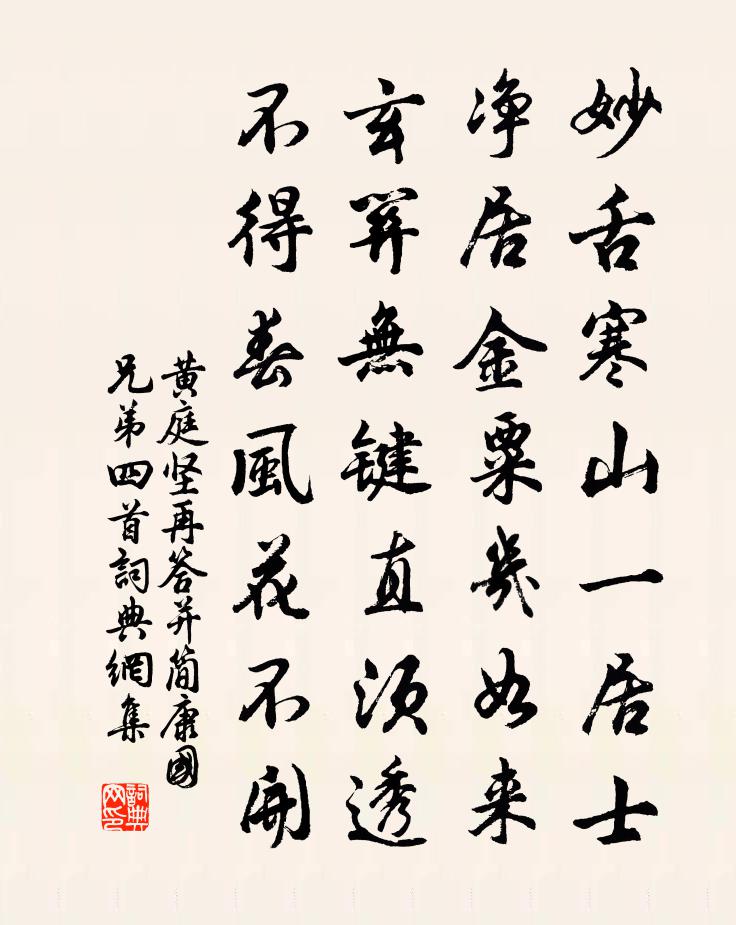 妙舌寒山一居士
净居金粟幾如来
玄關無键直須透
不得春風花不開
黄庭坚再答并简康國
兄弟四首詞典網集
詞典网印